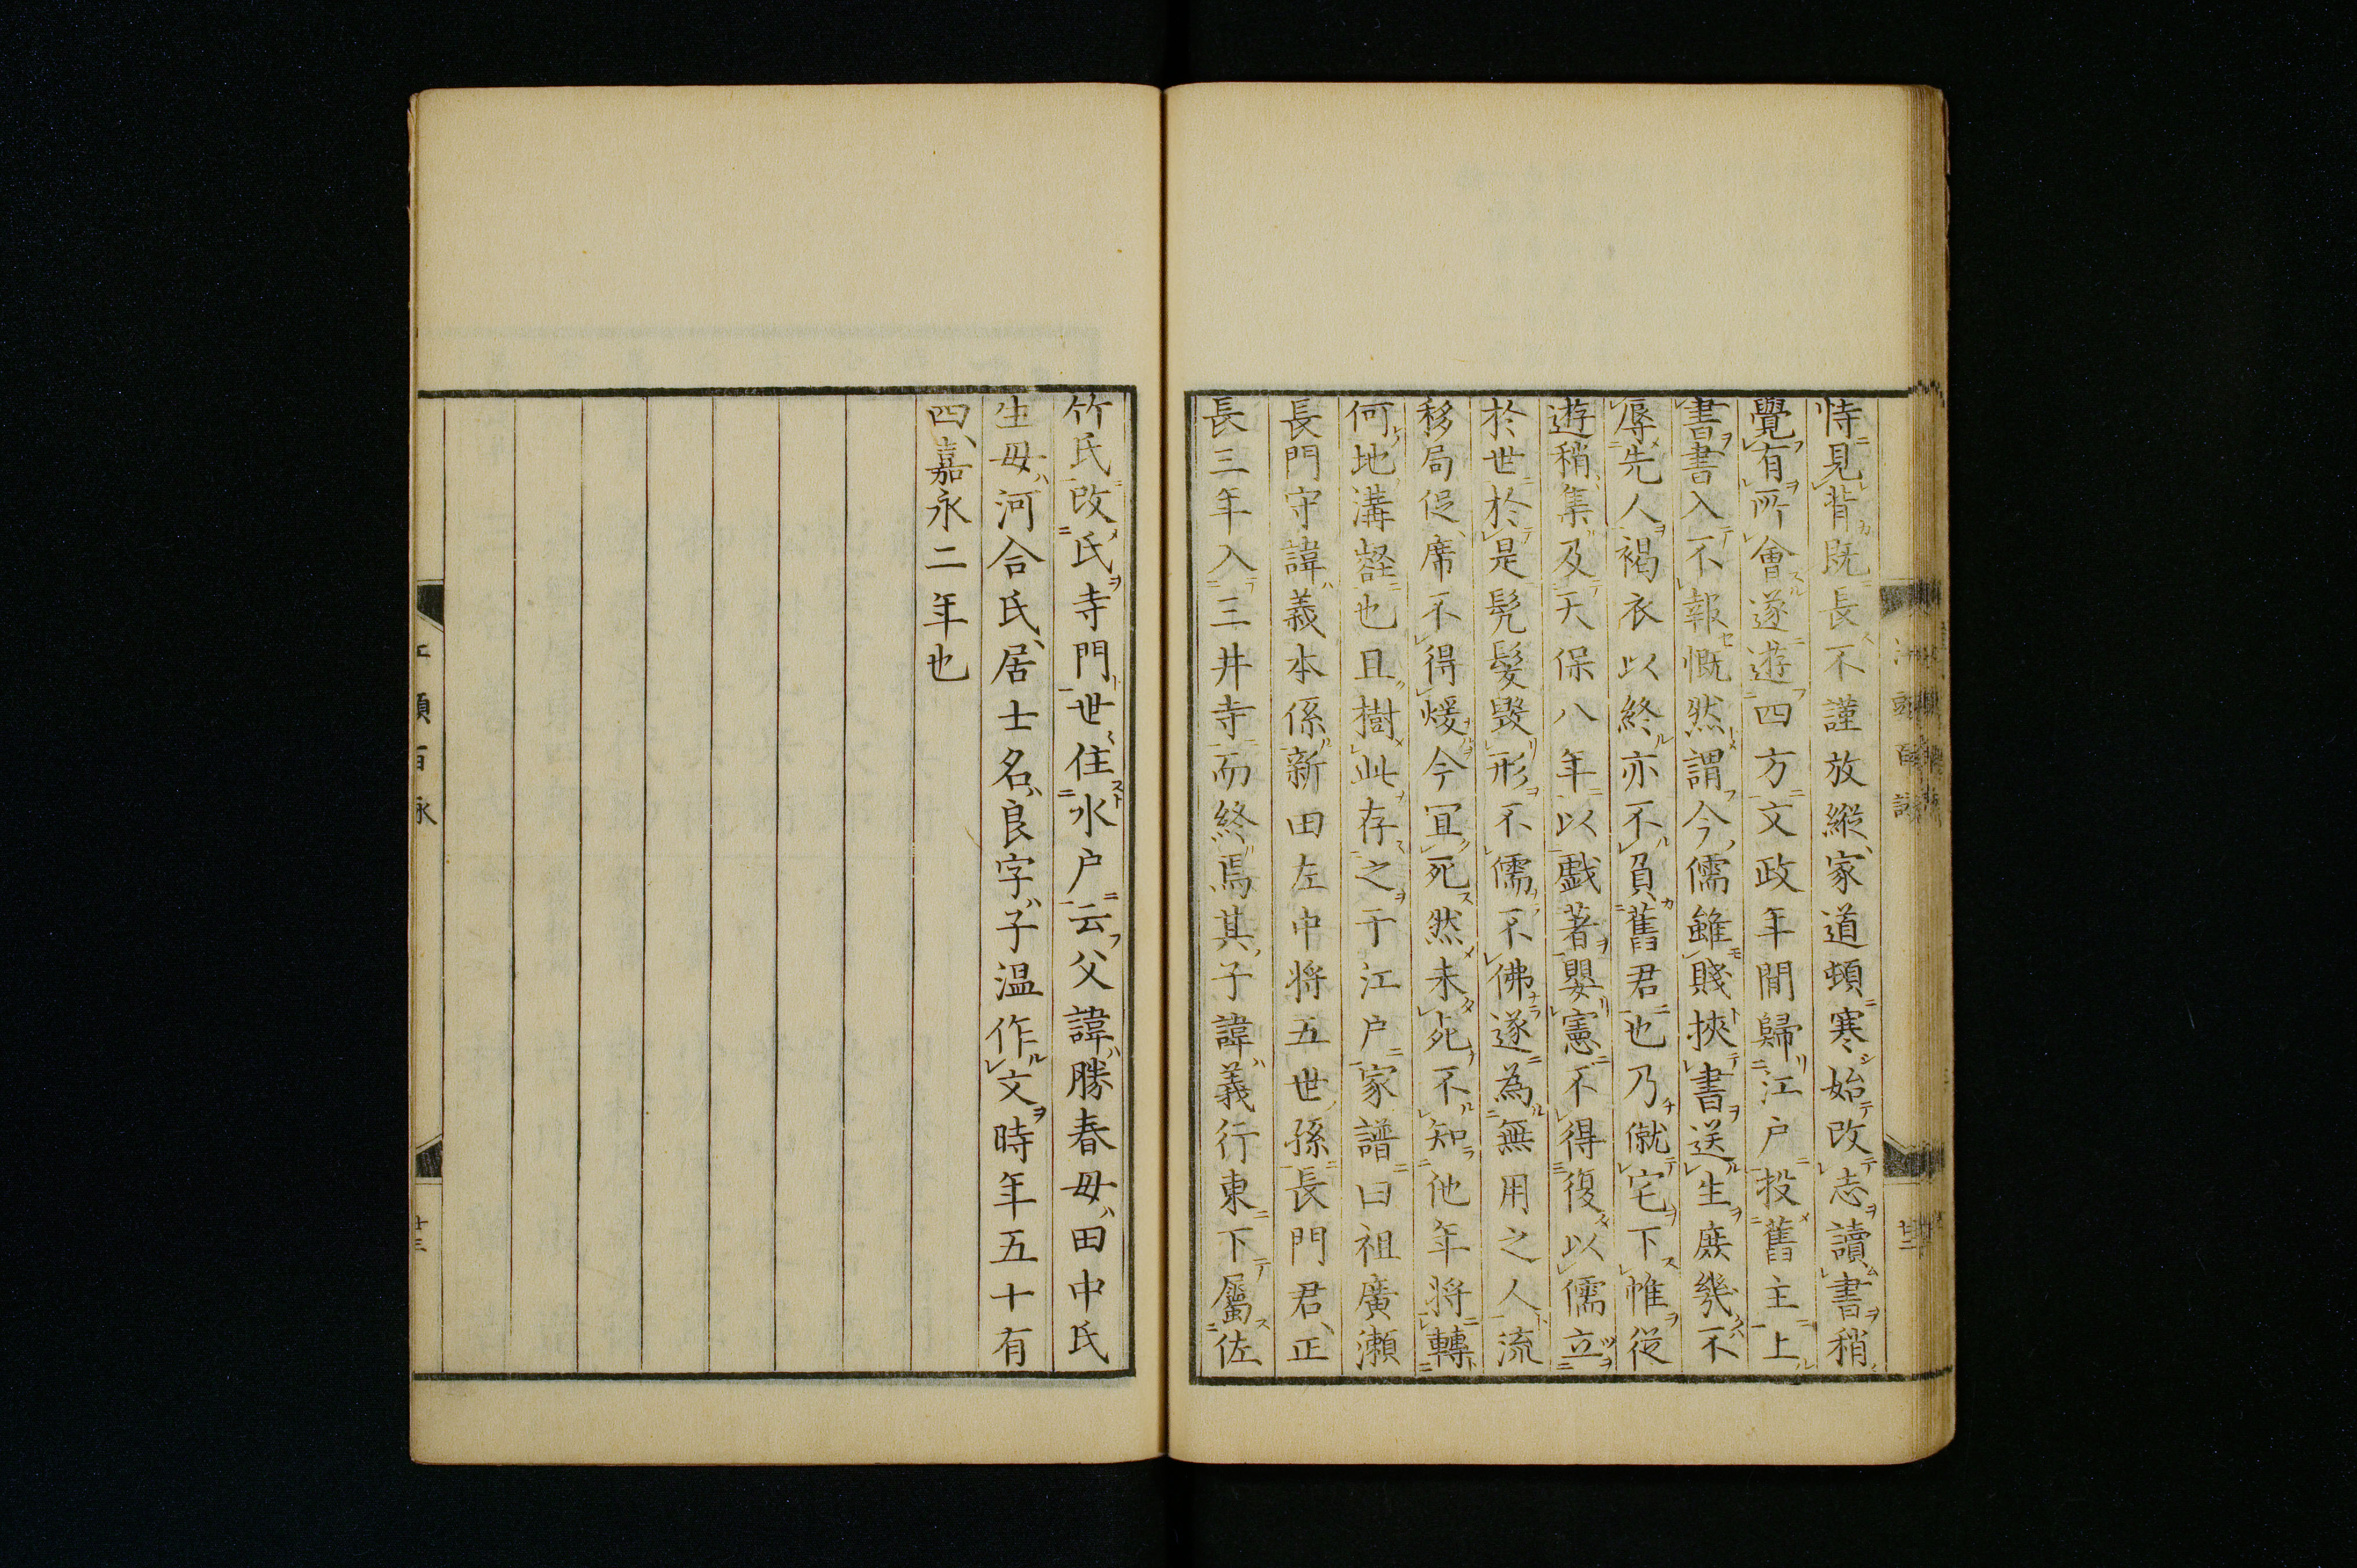 恃見背既長不謹放縱家道頓寒始改志讀書稍
覺有所會遂遊四方文政年間歸江戸投舊主上
書書入不報慨然謂今儒雖賤挾書送生庶幾不
辱先人褐衣以終亦不負舊君也乃僦宅下帷從
遊稍集及天保八年以戲著嬰憲不得復以儒立
於世於是髡髮毀形不儒不佛遂為無用之人流
移局促席不得煖今冝死然未死不知他年將轉
何地溝壑也且樹此存之于江戸家譜曰祖廣瀨
長門守諱義本係新田左中將五世孫長門君正
長三年入三井寺而終焉其子諱義行東下屬佐
竹氏改氏寺門世住水戸云父諱勝春母田中氏
生母河合氏居士名良字子温作文時年五十有
四嘉永二年也